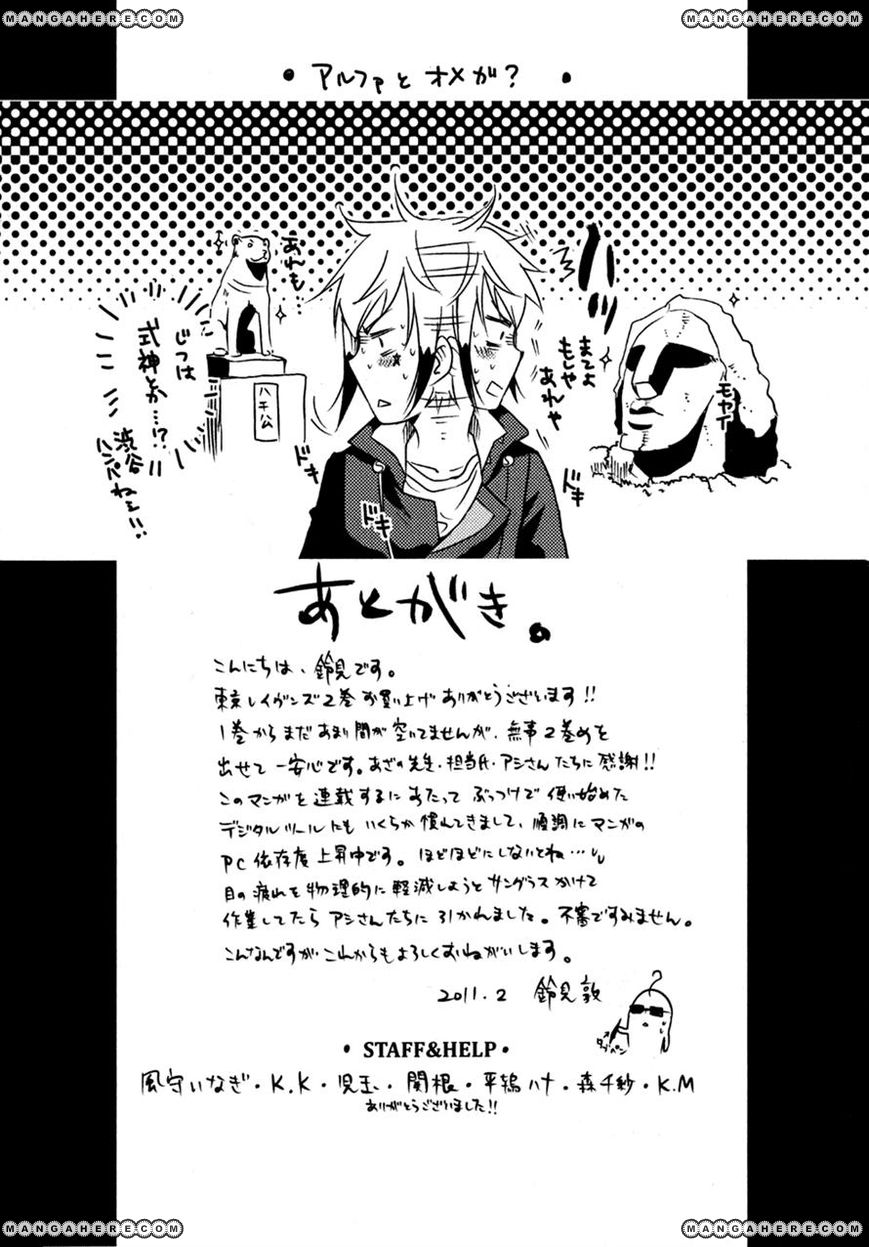 MANGAHERE.COM
MANGAHERE.COM
・アルファとオメガ?・
ハッ
まてよ
もしや
あれゃ
モヤイ
あれも…
ハチ公
じつは
式神とか…!?
渋谷
ハンパねェ…
ドキ
ドキ
ドキ
あとがき。
こんにちは、鈴見です。
東京レイヴンズ2巻お買い上げありがとうございます!!
1巻からまだあまり間が空いてませんが、無事2巻めを
出せて一安心です。あざの先生・担当氏・アシさんたちに感謝!!
このマンガを連載するにあたってぶっつけで使い始めた
デジタルツールにもいくらか慣れてきまして、順調にマンガの
PC依存度上昇中です。ほどほどにしないとね…
目の疲れを物理的に軽減しようとサングラスかけて
作業してたらアシさんたちに引かれました。不審ですみません。
こんなんですが、これからもよろしくおねがいします。
2011.2 鈴見敦
タブペン
・STAFF&HELP・
風守いなぎ・K.K・児玉・関根・平鴇ハナ・森千紗・K.M
ありがとうございました!!
MANGAHERE.COM
MANGAHERE.COM